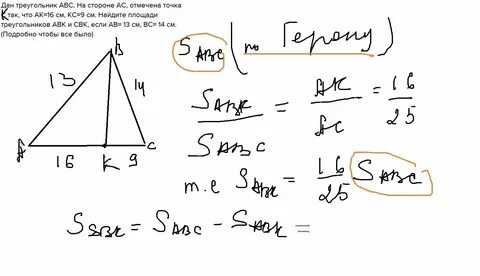 Дан треугольник ABC. На стороне AC, отмечена точка
K так, что AK=16 см, KC=9 см. Найдите площади
треугольников ABK и CBK, если AB= 13 см, BC= 14 см.
(Подробно чтобы все было)
S ABC (по Герону)
B
13 14
A K C
16 9
S ABK / S ABC = AK / AC = 16 / 25
т.е S ABK = 16/25 S ABC
S SBK = S ABC - S ABK =